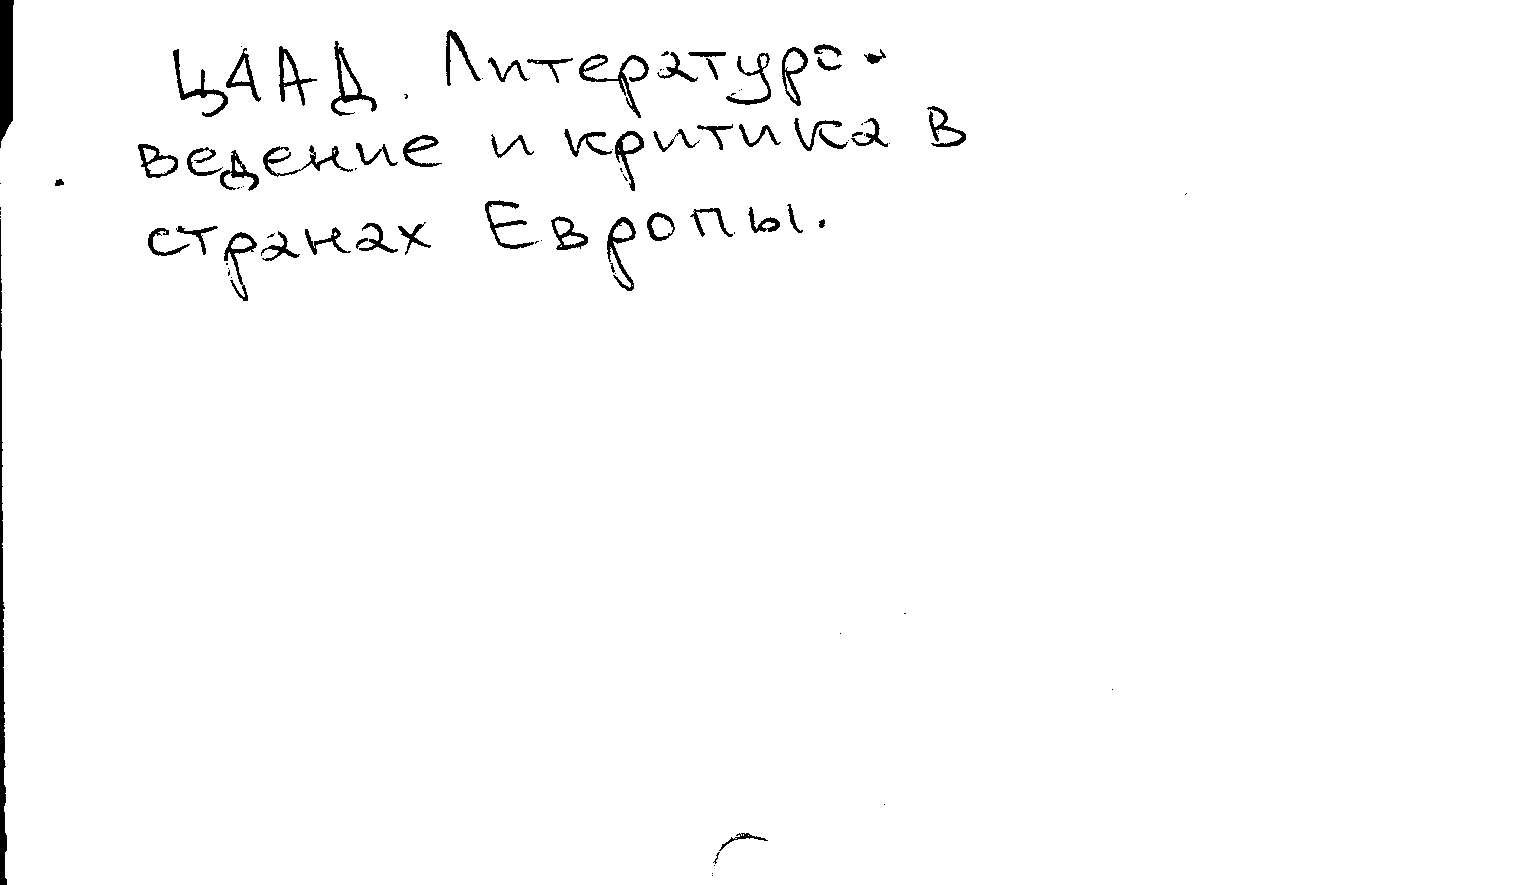 Ц4АД. Литературо-
ведение и критика в
странах Европы.